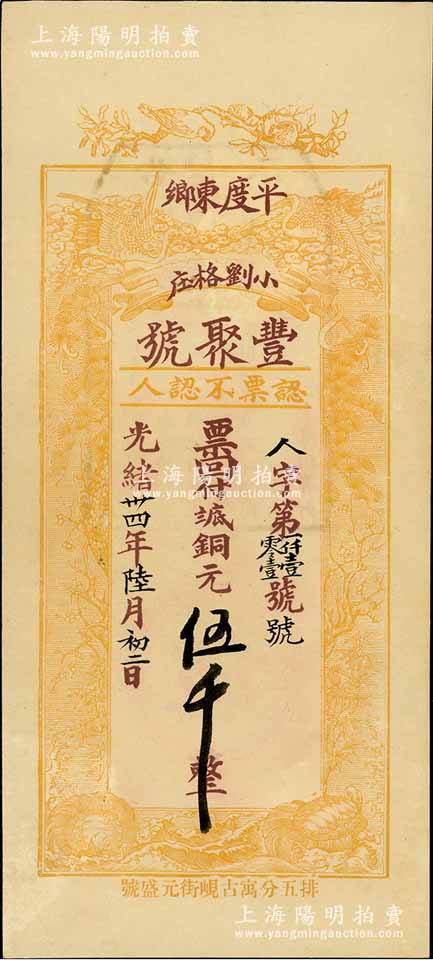 上海陽明拍賣
www.yangmingauction.com
平度東鄉
小劉格庄
豐聚號
認票不認人
人字第一仟零壹壹號號
票憑付號銅元伍千整
光緒卅四年陸月初二日
上海陽明拍賣
www.yangmingauction.com
排五分寓古峴街元盛號
上海陽明拍賣
www.yangmingauction.com